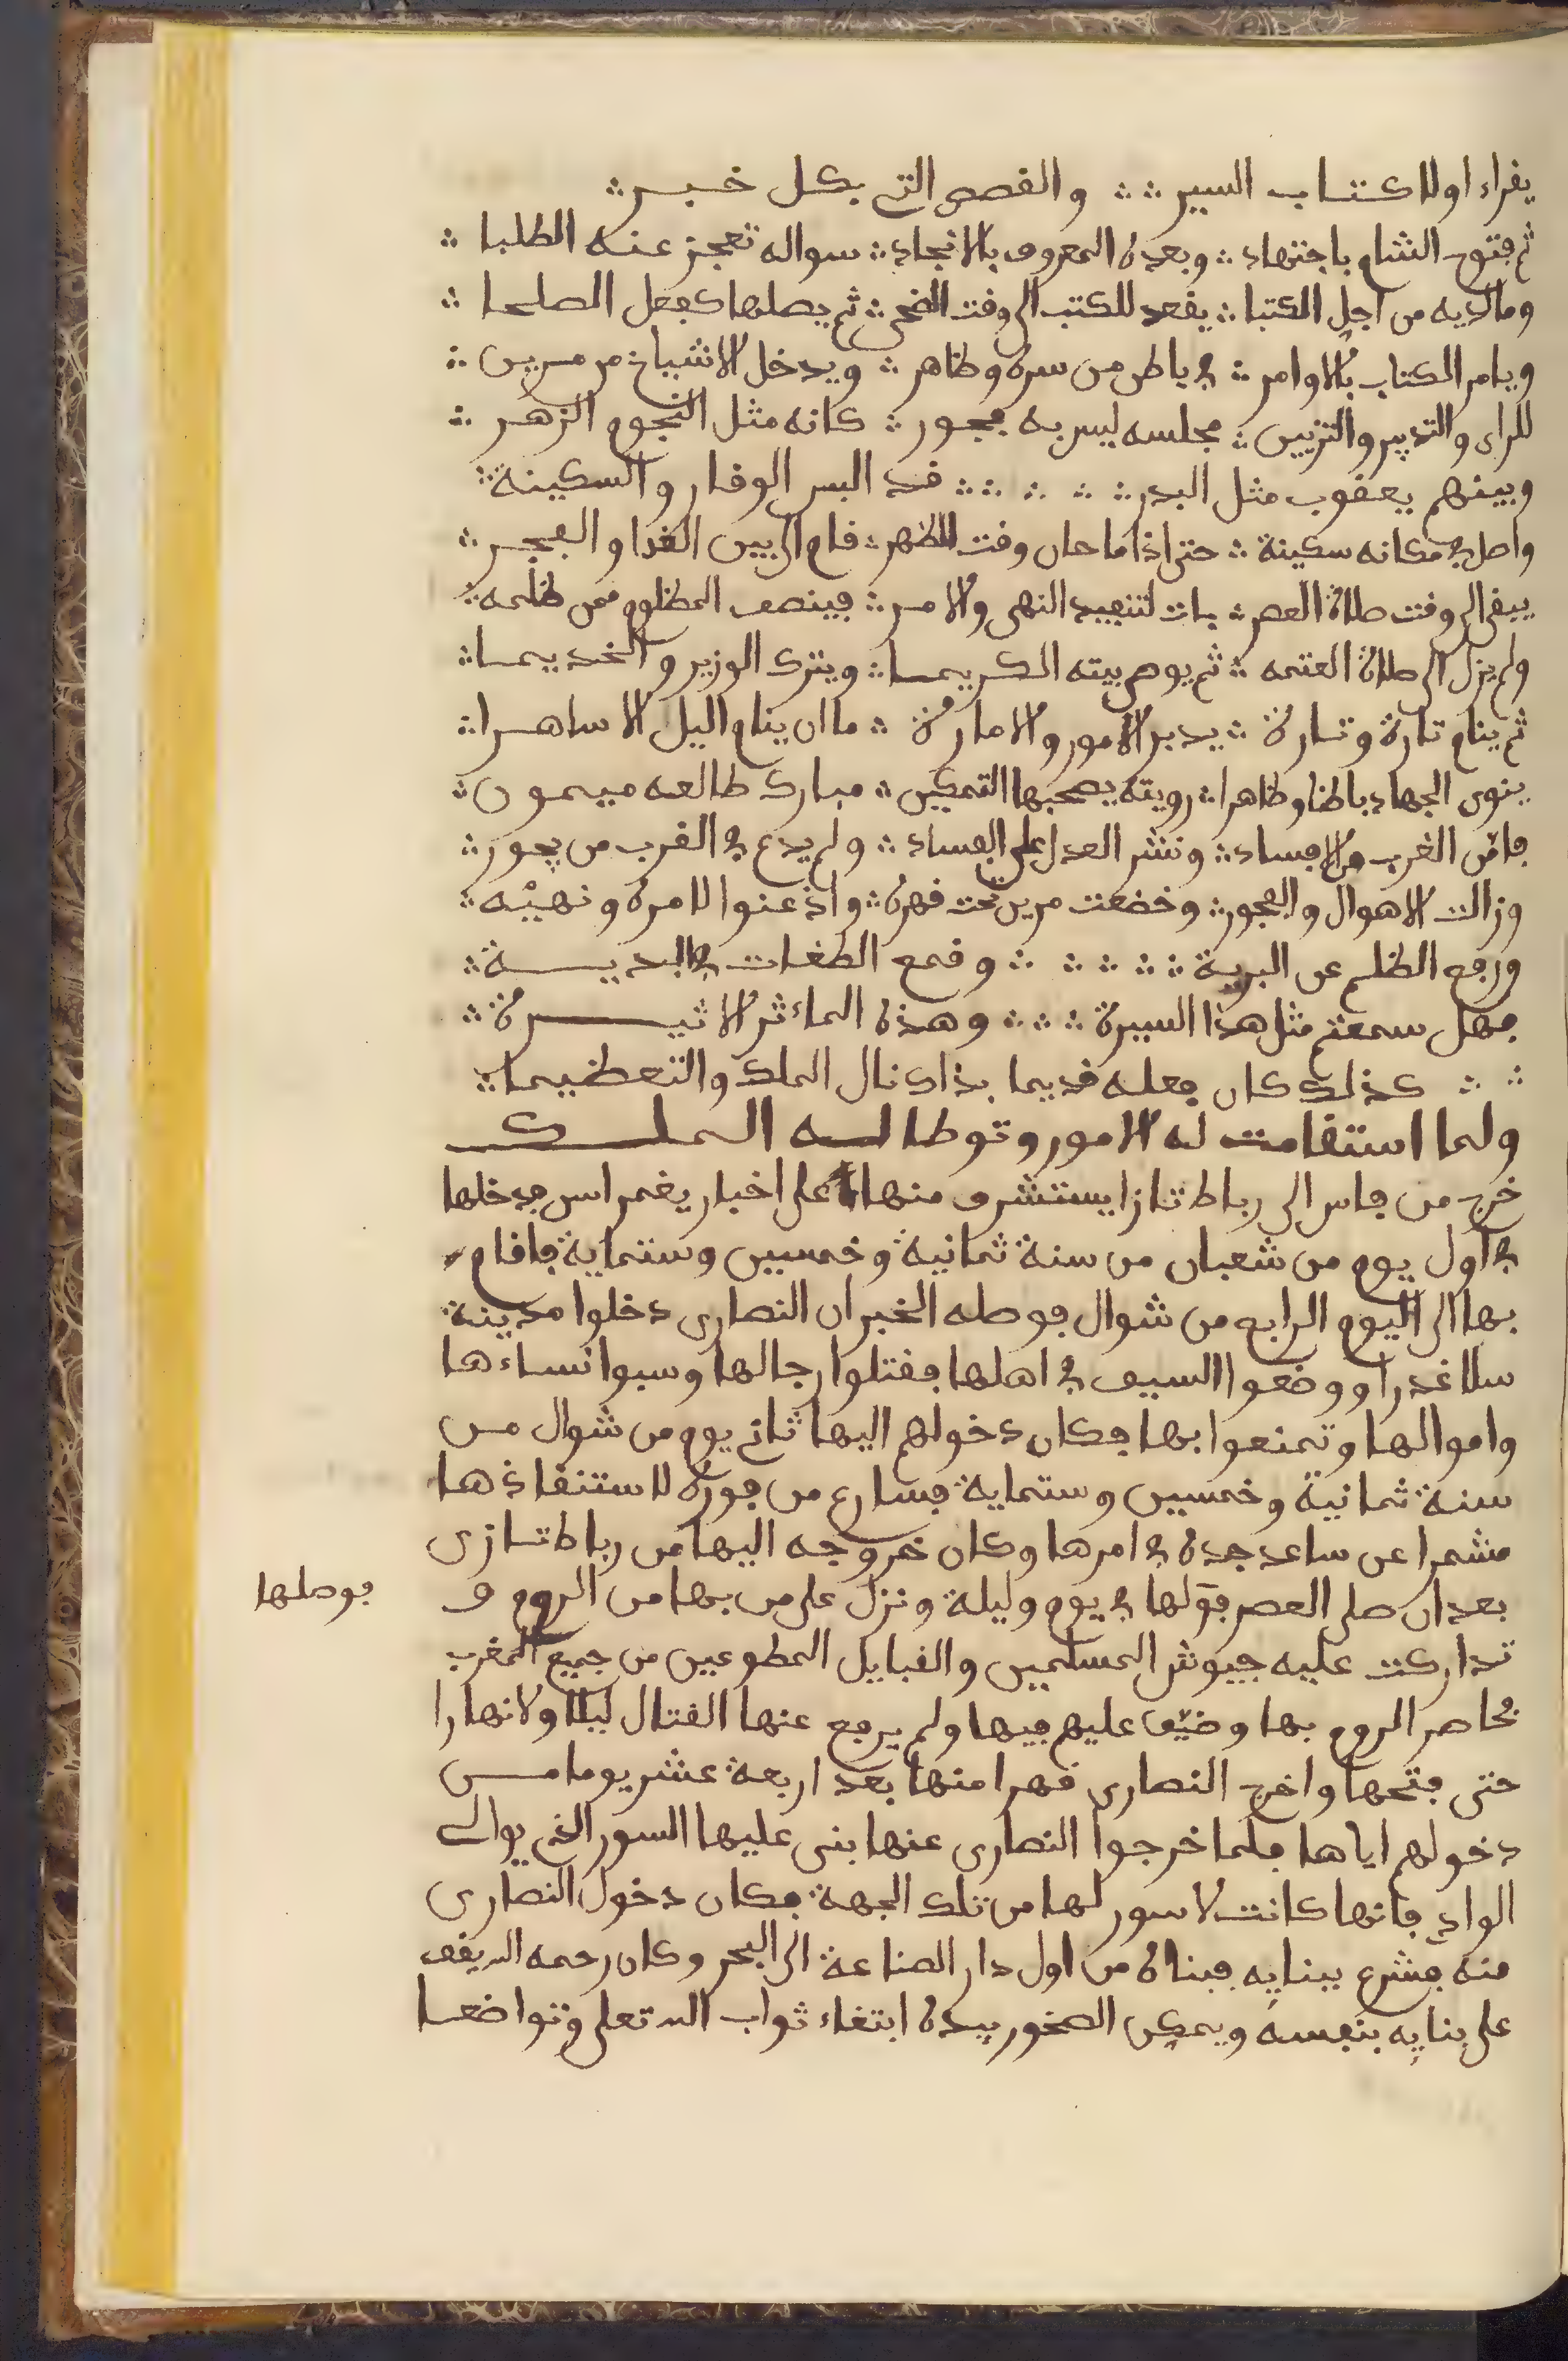 يقراء اولا كتاب السير ∴ ∴ والقصص التي بكل خبر ∴
ثم فتوح الشام باجتهاد ∴ وبعده المعروف بالانجاد ∴ سواله تعجز عنه الطلبا ∴
وما لديه من اجل الكتبا ∴ يقعد للكتب الى وقت الضحى ∴ ثم يصلها كفعل الصلحا ∴
ويامر الكتاب بالاوامر ∴ في باطن من سره وظاهر ∴ ويدخل الاشياخ من مرين ∴
للراى والتدبير والتزيين ∴ مجلسه ليس به فجور ∴ كانه مثل النجوم الزهر ∴
وبينهم يعقوب مثل البدر ∴ ∴ ∴ ∴ ∴ قد البس الوقار والسكينة ∴
واصل في مكانه سكينة ∴ حتى اذا ما حان وقت الظهر ∴ قام الى بين الغدا والفجر ∴
يبقى الى وقت صلاة العصر ∴ بات لتنفيد النهى والامر ∴ فينصف المظلوم ممن ظلمه ∴
ولم يزل الى صلاة العتمه ∴ ثم يوم بيته الكريما ∴ ويترك الوزير والخديما ∴
ثم ينام تارة وتارة ∴ يدبر الامور والامارة ∴ ما ان ينام اليل الا ساهرا ∴
ينوى الجهاد باطنا وظاهرا ∴ رويته يصحبها التمكين ∴ مبارك طالعه ميمون ∴
فامن الغرب من الافساد ∴ ونشر العدل على الفساد ∴ ولم يدع في الغرب من يجور ∴
وزالت الاهوال والفجور ∴ وخضعت مرين تحت قهره ∴ واذعنوا لامره ونهيه ∴
ورفع الظلم عن البرية ∴ ∴ ∴ ∴ ∴ وقمع الطغات في البدية ∴
فهل سمعتم مثل هذا السيرة ∴ ∴ ∴ وهذه الماثر الاثيرة ∴
∴ ∴ كذلك كان فعله قديما بذاك نال الملك والتعظيما ∴
ولما استقامت له الامور وتوطا له الملك
خرج من فاس الى رباط تازا يستشرف منها على اخبار يغمراسن فدخلها
في اول يوم من شعبان من سنة ثمانية وخمسين وستماية فاقام
بها الى اليوم الرابع من شوال فوصله الخبر ان النصارى دخلوا مدينة
سلا غدرا ووضعوا السيف في اهلها فقتلوا رجالها وسبوا نساءها
واموالها وتمنعوا بها فكان دخولهم اليها ثاني يوم من شوال من
سنة ثمانية وخمسين وستماية فسارع من فوره لاستنقاذها
مشمرا عن ساعد جده في امرها وكان خروجه اليها من رباط تازى
بعد ان صلى العصر فوصلها في يوم وليلة ونزل على من بها من الروم و
فوصلها
تداركت عليه جيوش المسلمين والقبايل المطوعين من جميع المغرب
فحاصر الروم بها وضيق عليهم فيها ولم يرفع عنها القتال ليلا ولا نهارا
حتى فتحها واخرج النصارى قهرا منها بعد اربعة عشر يوما من
دخولهم اياها فلما خرجوا النصارى عنها بنى عليها السور الذي يوالى
الوادي فانها كانت لا سور لها من تلك الجهة فكان دخول النصارى
منه فشرع ببنايه فبناه من اول دار الصناعة الى البحر وكان رحمه الله يقف
على بنايه بنفسه ويمكن الصخور بيده ابتغاء ثواب الله تعلى وتواضعا